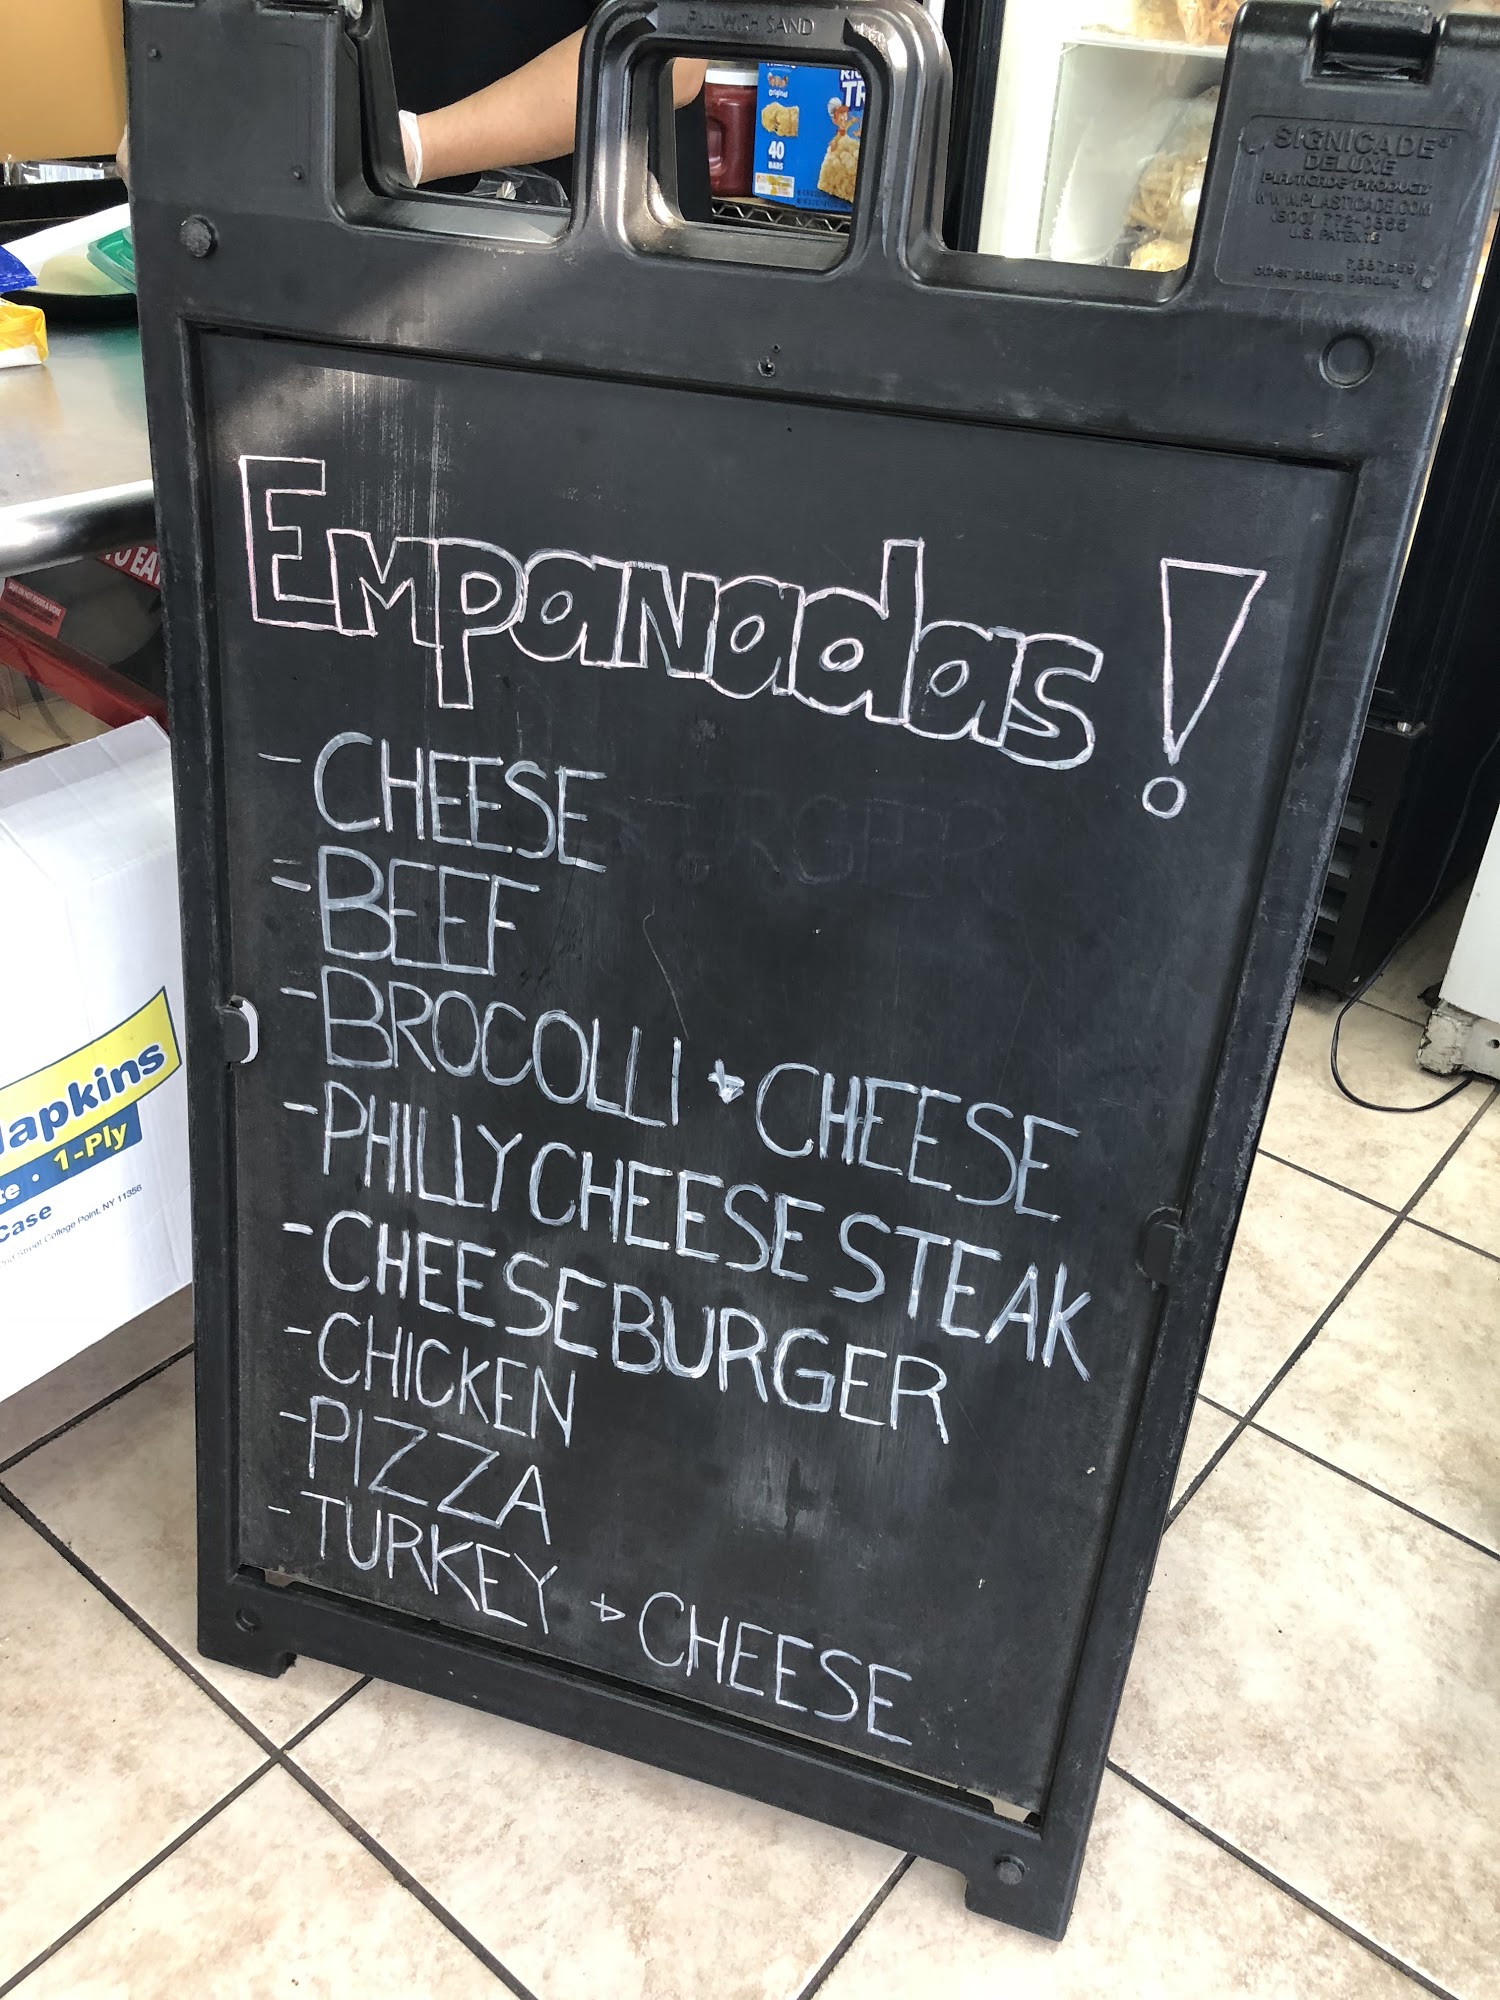 FILL WITH SAND
Original
40
BARS
SIGNICADE®
DELUXE
PLASTICADE PRODUCTS
WWW.PLASTICADE.COM
(800) 772-0355
U.S. PATENTS
other patents pending
TO EAT
Empanadas!
- CHEESE
= BEEF
- BROCOLLI + CHEESE
- PHILLY CHEESE STEAK
- CHEESEBURGER
- CHICKEN
- PIZZA
- TURKEY + CHEESE
Napkins
1-Ply
Case
Street College Point, NY 11356